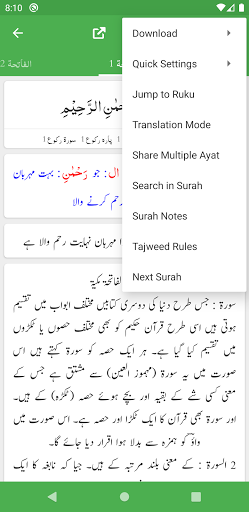 8:10
الفاتحة 2
1
Download
Quick Settings
Jump to Ruku
Translation Mode
Share Multiple Ayat
Search in Surah
Surah Notes
Tajweed Rules
Next Surah
حْمٰنِ الرَّحِیْمِ
پارہ رکوع 1 سورۃ رکوع 1
ال : جو رَحْمٰنِ : بہت مہربان
رحم کرنے والا
مہربان نہایت رحم والا ہے
الفاتحۃ مکیۃ
سورۃ : جس طرح دنیا کی دوسری کتابیں مختلف ابواب میں تقسیم
ہوتی ہیں اسی طرح قرآن حکیم کو بھی مختلف حصوں یا ٹکڑوں
میں تقسیم کیا گیا ہے۔ ہر ایک حصہ کو سورۃ کہتے ہیں اس
صورت میں یہ سورۃ (مہموز العین) سے مشتق ہے جس کے
معنی کسی شے کے بقایہ اور بچے ہوئے حصہ (ٹکڑہ) کے ہیں۔
اور سورۃ بھی قرآن کا ایک حصہ (ٹکڑہ) ہے۔ اس صورت میں
واؤ کو ہمزہ سے بدلا ہوا اقرار دیا جائے گا۔
2 السورۃ : کے معنی بلند مرتبہ کے ہیں۔ جیا کہ نابغہ کا ایک